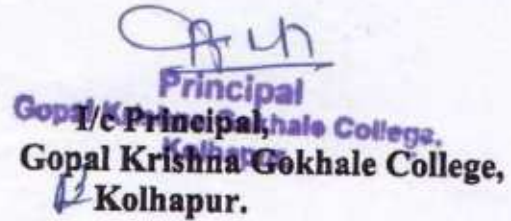 Principal
Gopal Krishna Gokhale College,
Kolhapur
I/c Principal,
Gopal Krishna Gokhale College,
Kolhapur.